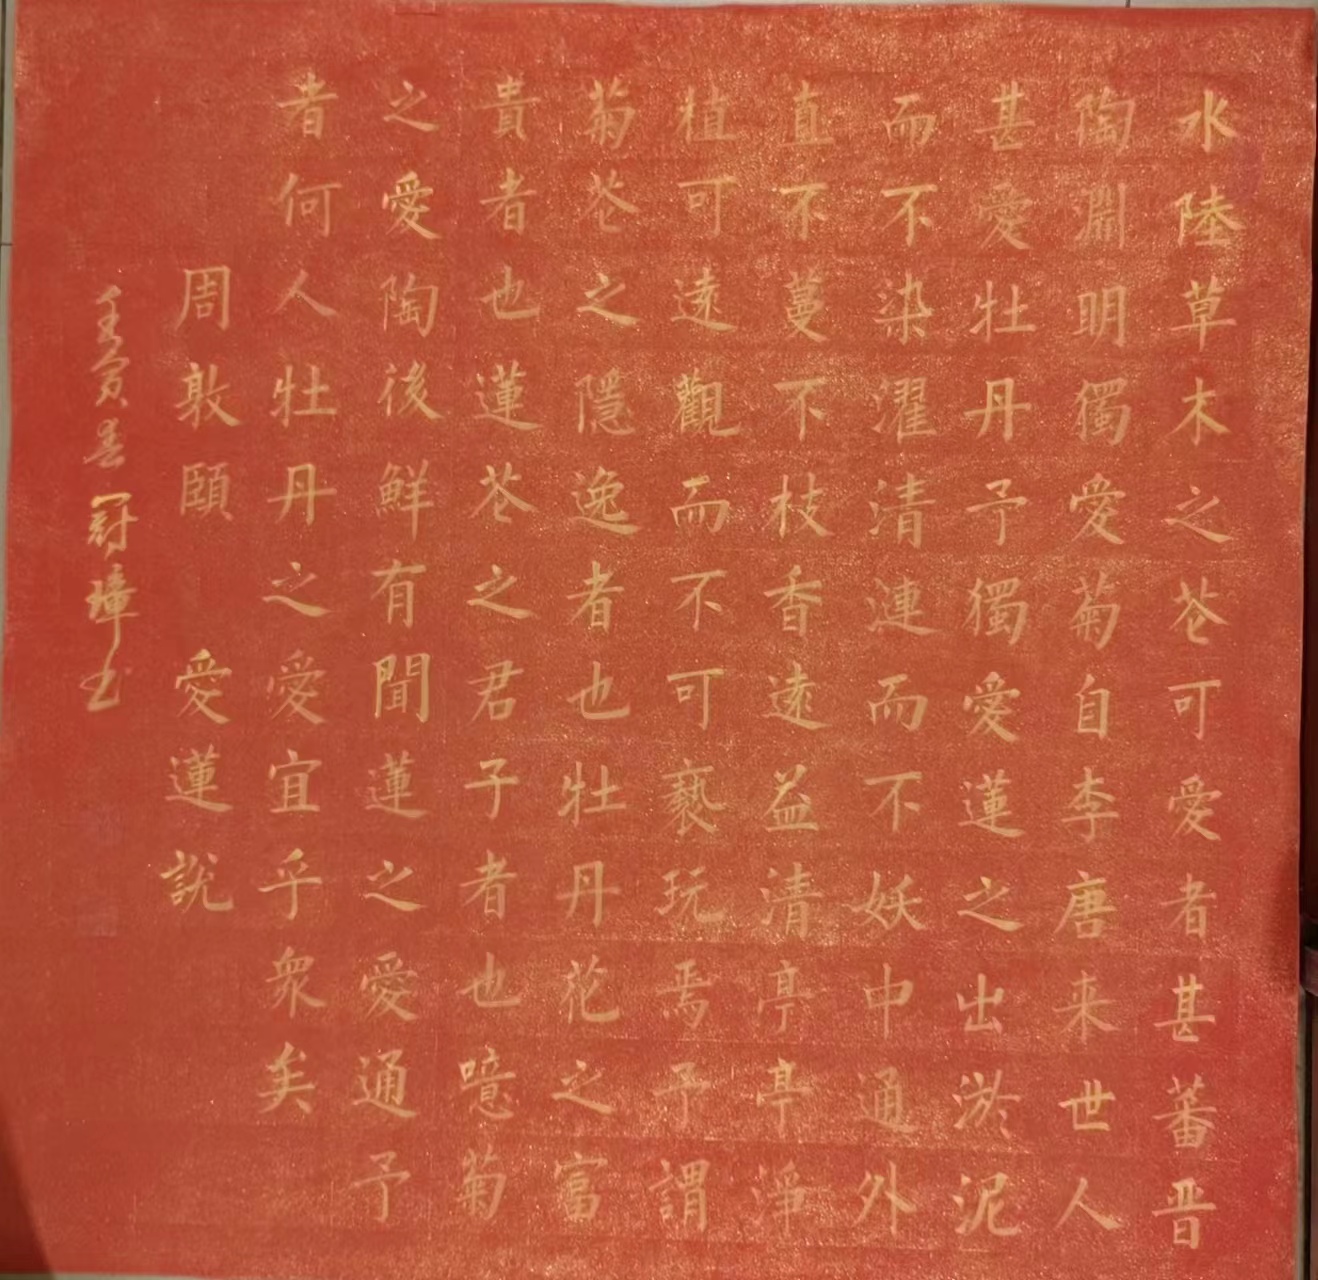 水陸草木之花可愛者甚蕃晋
陶淵明獨愛菊自李唐来世人
甚愛牡丹予獨愛蓮之出淤泥
而不染濯清漣而不妖中通外
直不蔓不枝香遠益清亭亭淨
植可遠觀而不可褻玩焉予謂
菊花之隱逸者也牡丹花之富
貴者也蓮花之君子者也噫菊
之愛陶後鮮有聞蓮之愛通予
者何人牡丹之愛宜乎眾矣
周敦頤 愛蓮說
壬寅春 冠璋书